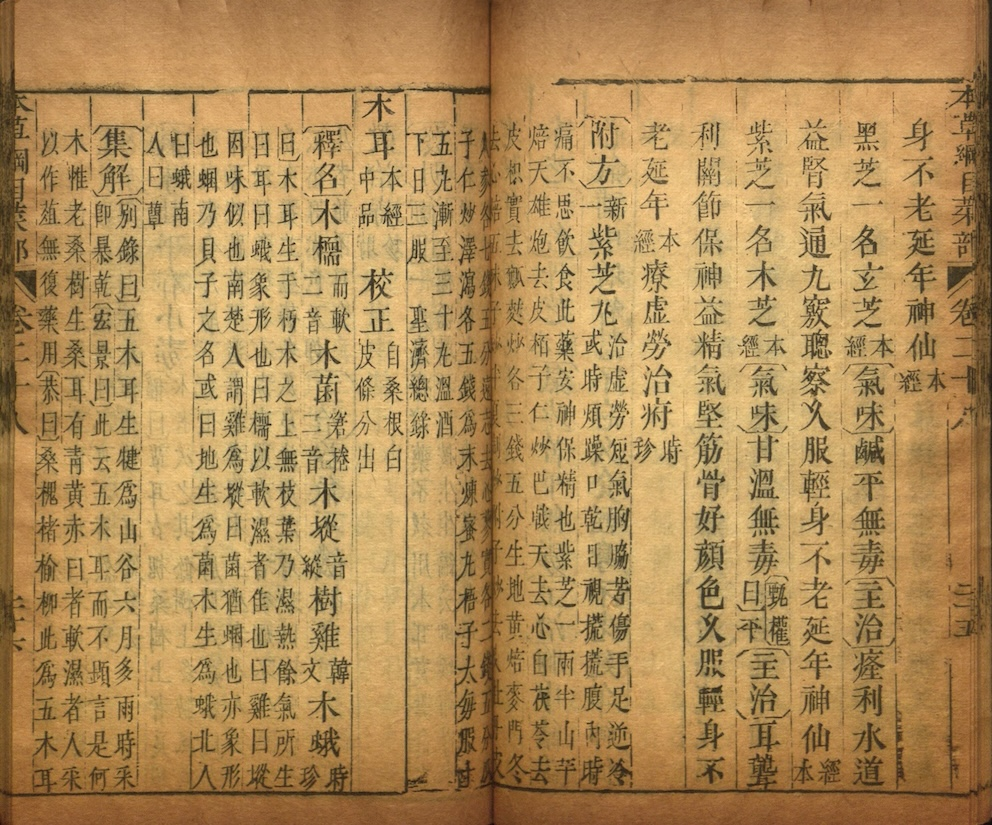 身不老延年神仙本經
黑芝一名玄芝本經氣味鹹平無毒主治癃利水道
益腎氣通九竅聰察久服輕身不老延年神仙本經
紫芝一名木芝本經氣味甘溫無毒甄權曰平主治耳聾
利關節保神益精氣堅筋骨好顏色久服輕身不
老延年本經療虛勞治痔時珍
附方新一紫芝丸治虛勞短氣胸脇苦傷手足逆冷
或時煩躁口乾目視䀮䀮腹內時
痛不思飲食此藥安神保精也紫芝一兩半山芋
焙天雄炮去皮柏子仁炒巴戟天去心白茯苓去
皮枳實去瓤麩炒各三錢五分生地黃焙麥門冬
子仁炒澤瀉各五錢為末煉蜜丸梧子大每服十
五丸漸至三十丸溫酒
下日三服 聖濟總錄
木耳本經中品 校正自桑根白皮條分出
釋名木檽而軟二音木菌窘捲二音木㙡音縱樹雞韓文木蛾時珍
曰木耳生于朽木之上無枝葉乃濕熱餘氣所生
曰耳曰蛾象形也曰檽以軟濕者佳也曰雞曰㙡
因味似也南楚人謂雞為㙡曰菌猶蜠也亦象形
也蜠乃貝子之名或曰地生為菌木生為蛾北人
曰蛾南
人曰蕈
集解別錄曰五木耳生犍為山谷六月多雨時采
即暴乾宏景曰此云五木耳而不顯言是何
木惟老桑樹生桑耳有青黃赤白者軟濕者人采
以作葅無復藥用恭曰桑槐楮榆柳此為五木耳